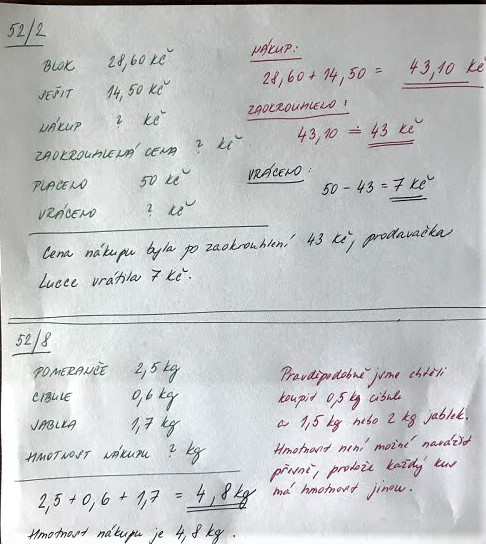 52/2
BLOK 28,60 Kč
SEŠIT 14,50 Kč
NÁKUP ? Kč
ZAOKROUHLENÁ CENA ? Kč
PLACENO 50 Kč
VRÁCENO ? Kč
NÁKUP:
28,60 + 14,50 = 43,10 Kč
ZAOKROUHLENO:
43,10 ≐ 43 Kč
VRÁCENO:
50 - 43 = 7 Kč
Cena nákupu byla po zaokrouhlení 43 Kč, prodavačka
Lucce vrátila 7 Kč.
52/8
POMERANČE 2,5 kg
CIBULE 0,6 kg
JABLKA 1,7 kg
HMOTNOST NÁKUPU ? kg
2,5 + 0,6 + 1,7 = 4,8 kg
Hmotnost nákupu je 4,8 kg.
Pravděpodobně jsme chtěli
koupit 0,5 kg cibule
a 1,5 kg nebo 2 kg jablek.
Hmotnost není možné navážit
přesně, protože každý kus
má hmotnost jinou.